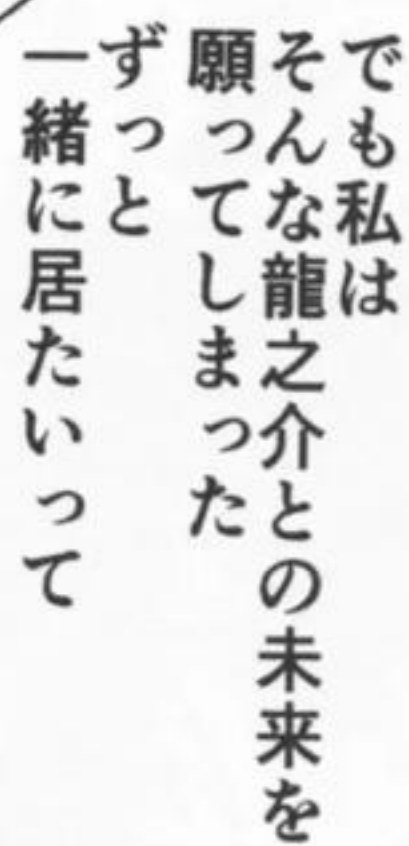 でも私は
そんな龍之介との未来を
願ってしまった
ずっと
一緒に居たいって